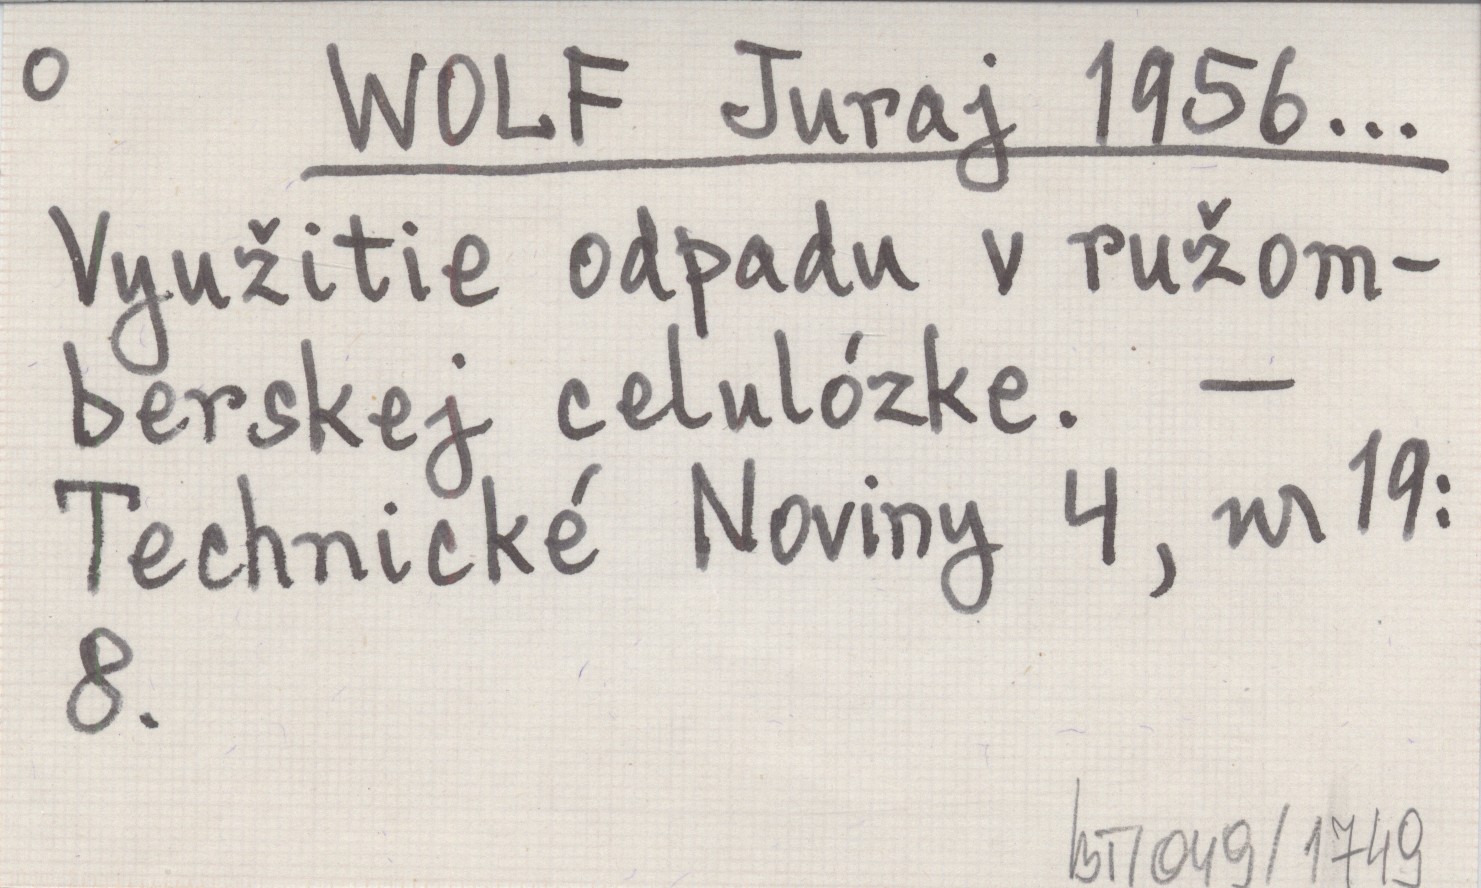 o WOLF Juraj 1956...
Využitie odpadu v ružom-
berskej celulózke. —
Technické Noviny 4, nr 19:
8.
BT/049/1749